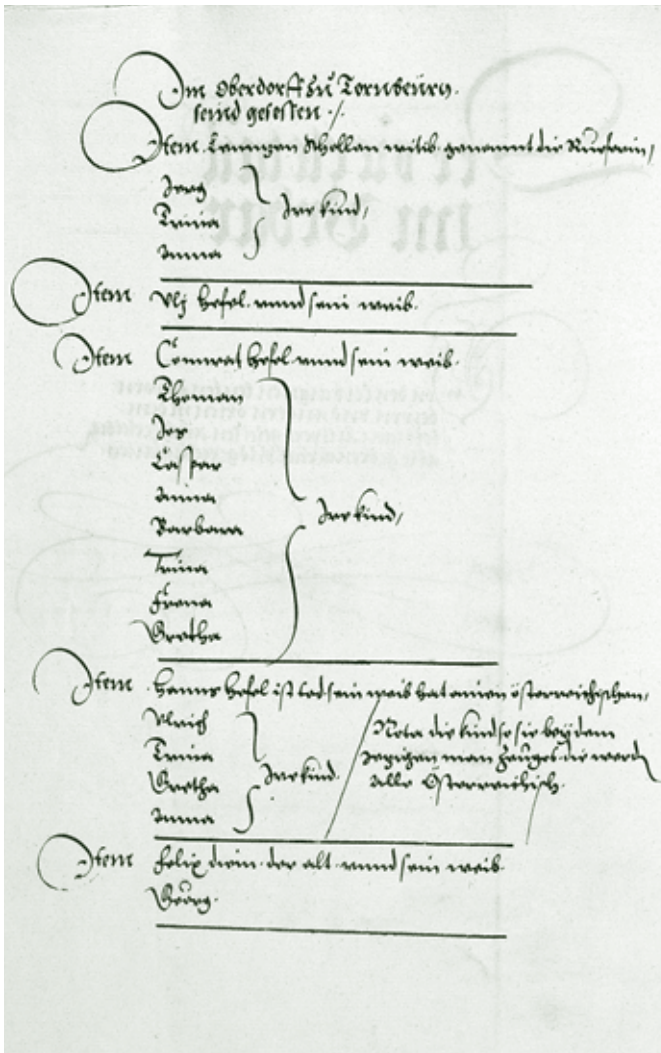 Im Oberdorff zu Dornburen
seind gesessen ./.
Item Schellen witib genannt die
Jerg
Trina } Ire kind /
Anna
Item Ulj Hefel unnd sein weib
Item Connrat Hefel unnd sein weib
Thoman
Jos
Caspar
Anna
Barbara } Ire kind /
Trina
Frena
Gretha
Item Hanns Hefel ist tod sein weib hat ainen österreichischen /
Ulrich
Trina
Gretha } Ire kind
Anna
Nota die kind so sie bey dem
man die werden
alle Österreichisch
Item Felix der alt unnd sein weib
Georg